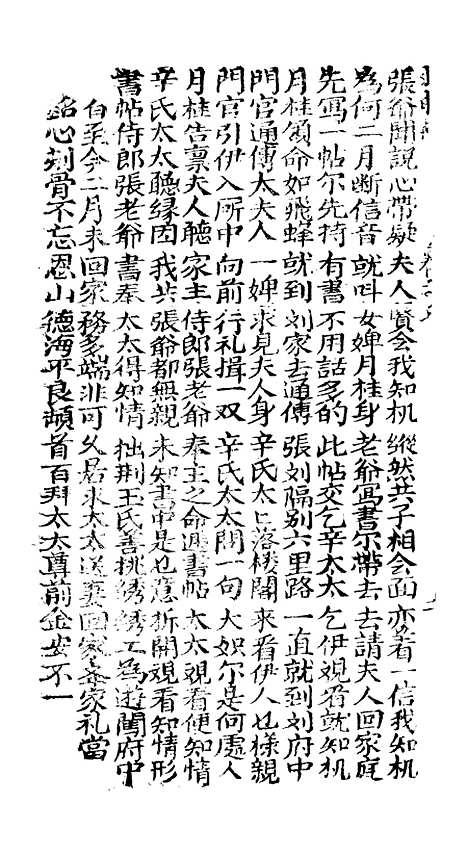 張爺聞說心帶疑夫人賢会我知机縱然共子相会面亦着一信我知机
為何二月断信音就呌女婢月桂身老爺寫書尔帶去去請夫人回家庭
先寫一帖尔先持有書不用話多的此帖交乞辛太太乞伊視看就知机
月桂領命如飛蜂就到刘家去通傳張刘隔别六里路一直就到刘府中
門官通傳太夫人一婢求見夫人身辛氏太太落楼閣來看伊人乜樣親
門官引伊入㕔中向前行礼揖一双辛氏太太問一句大娘尔是何處人
月桂告禀夫人聽家主侍郎張老爺奉主之命逓書帖太太視看便知情
辛氏太太聽緣因我共張爺都無親未知書中是乜意折開視看知情形
書帖侍郎張老爺書奉太太得知情拙荆王氏善挑綉綉工為遊閣府中
自至今二月未回家務多端非可久居求太太送妻回家家礼當
銘心刻骨不忘恩山德海平良頓首百拜太太尊前金安不一